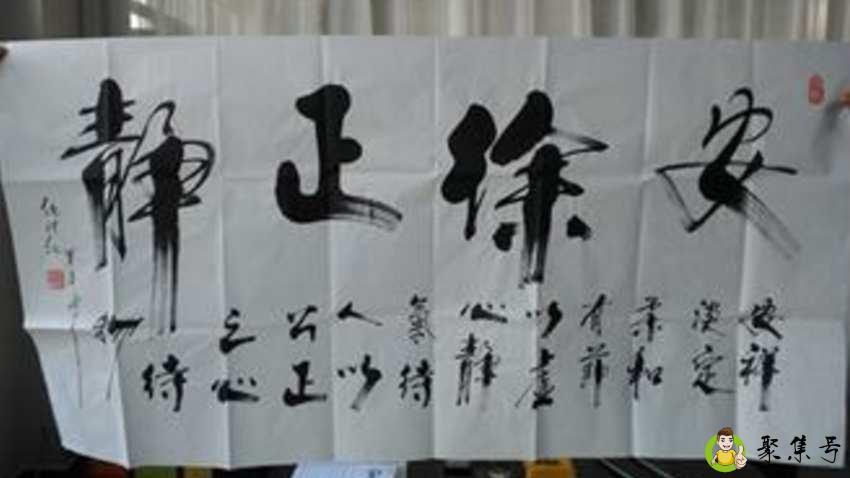 安徐正静
安祥
淡定
柔和
有节
以虚
心静
氣待
人以
公正
之心
待
物
聚集号